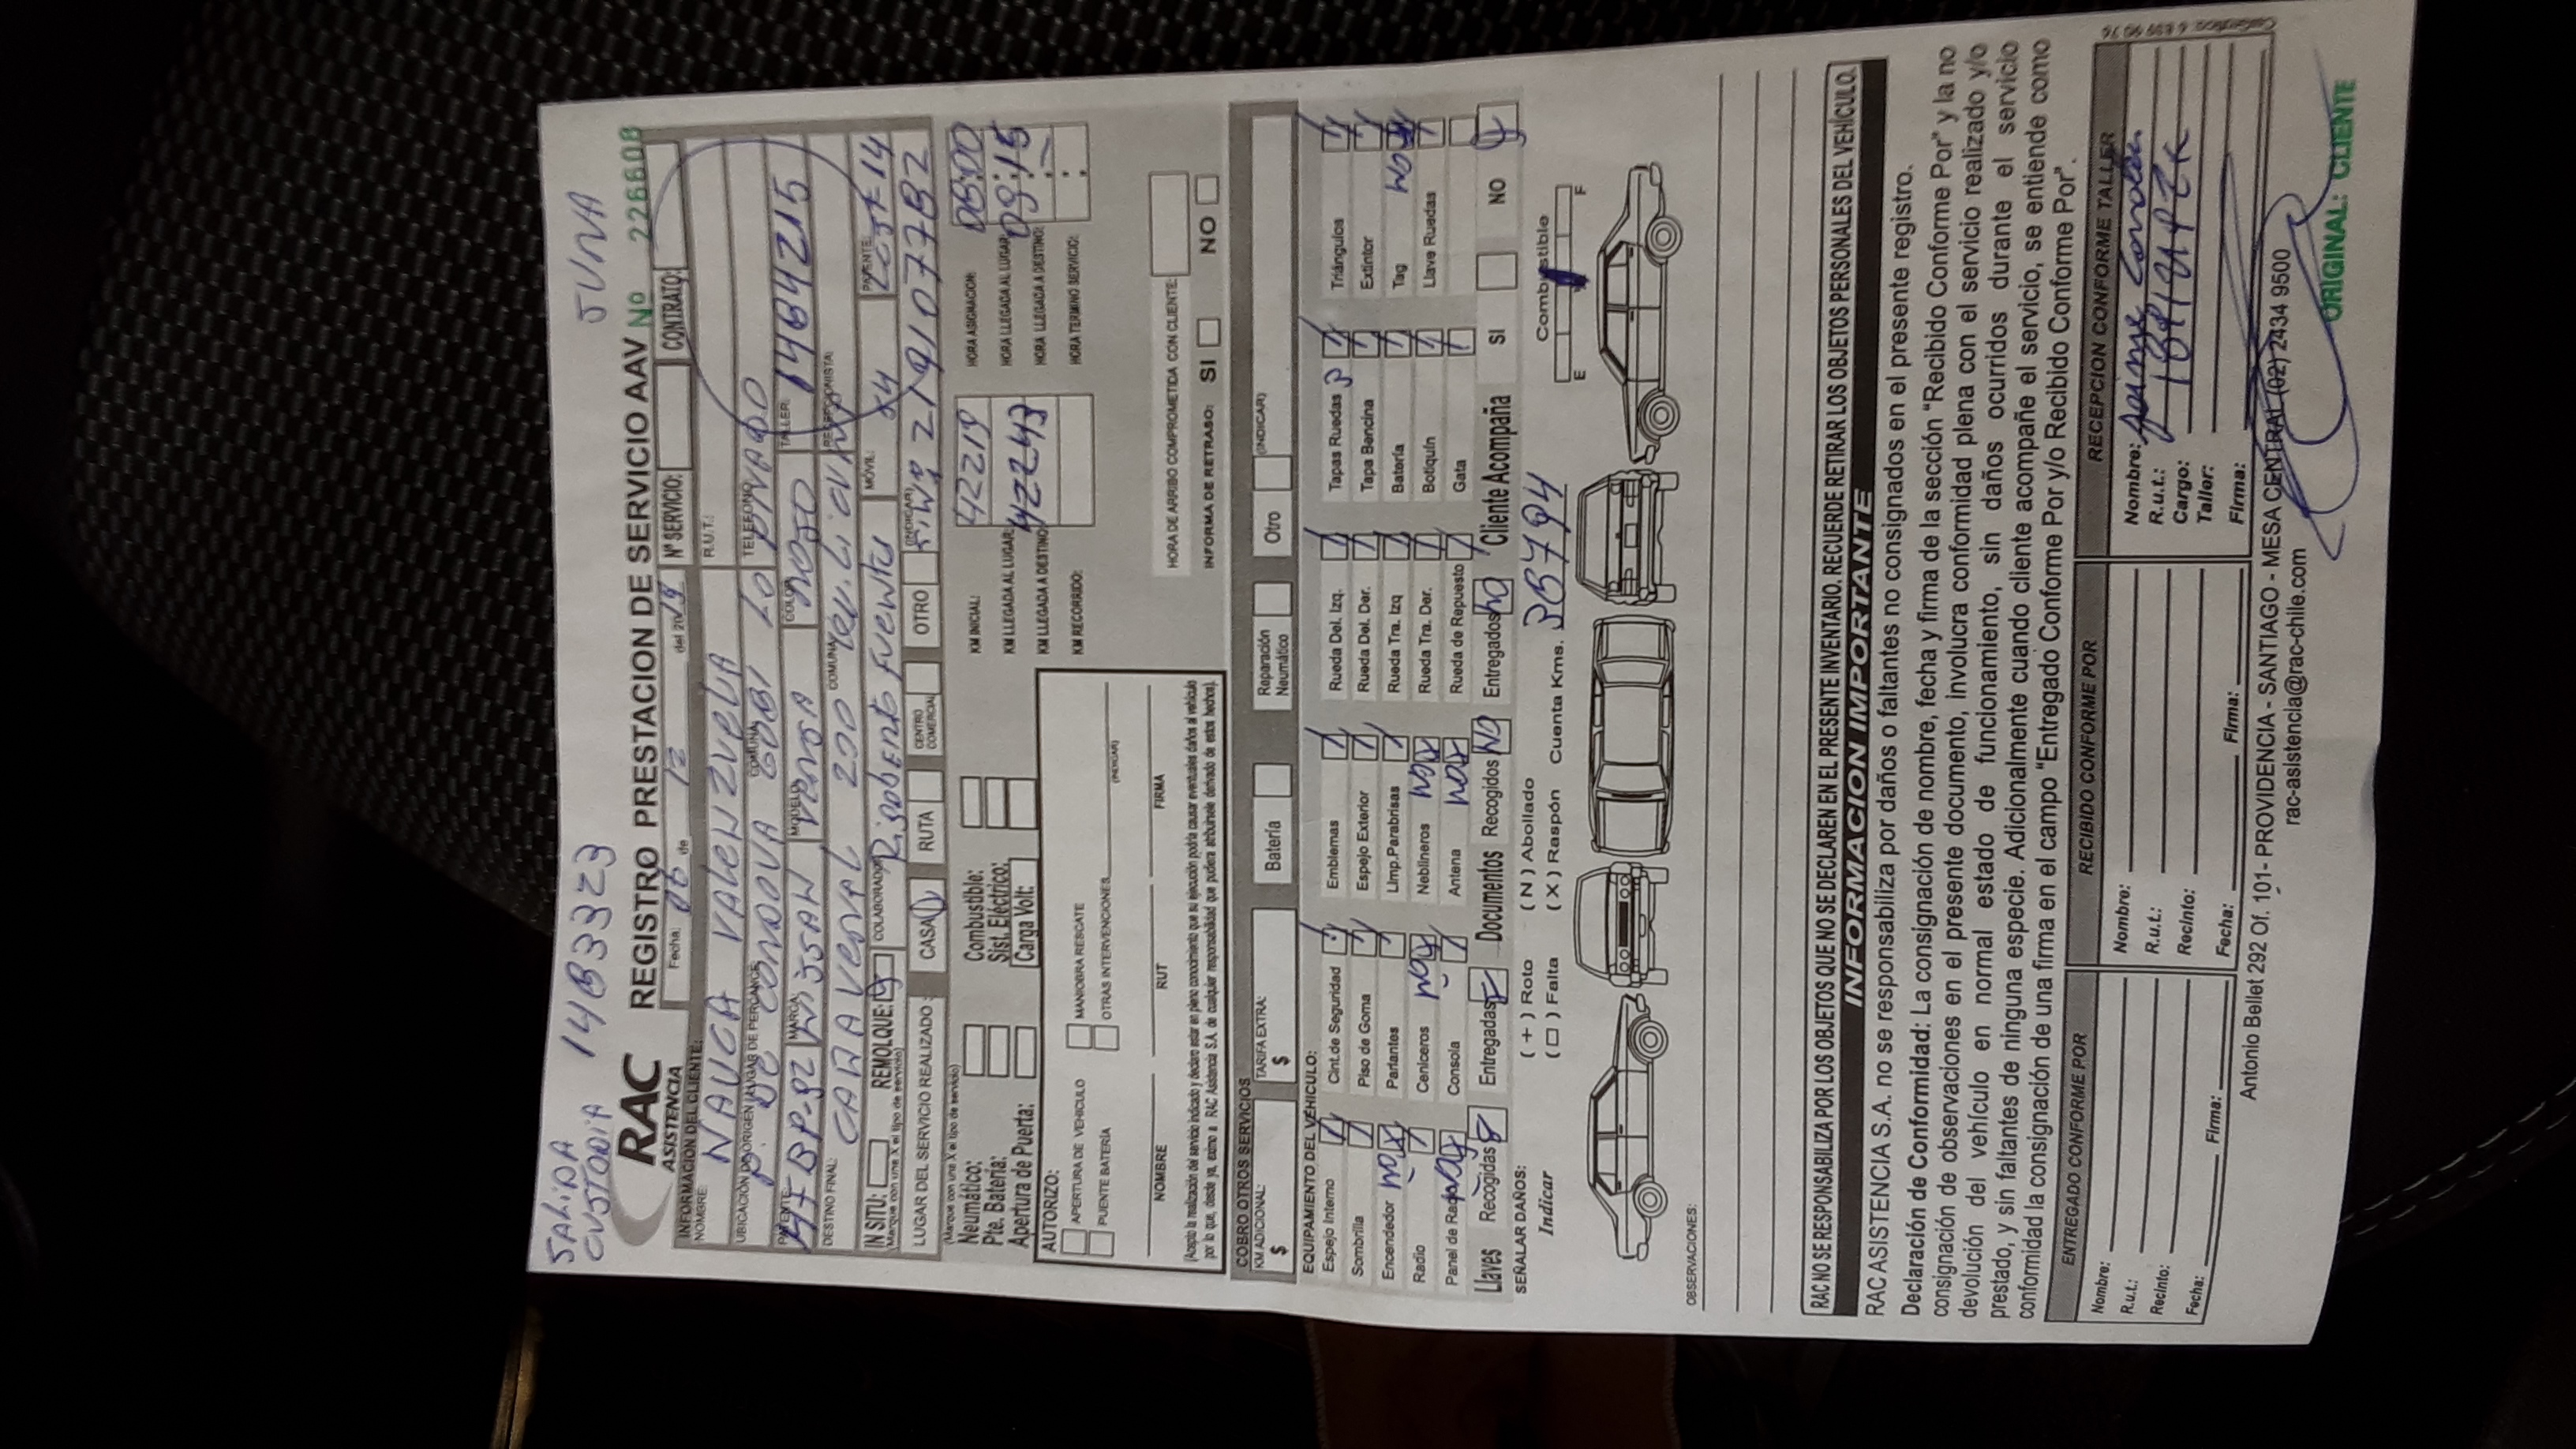 SALIDA
CUSTODIA 1483323 SURA
RAC
ASISTENCIA
REGISTRO PRESTACION DE SERVICIO AAV No 226608
INFORMACION DEL CLIENTE: Fecha: 06 de 12 del 2019 Nº SERVICIO: CONTRATO:
NOMBRE: VALENZUELA R.U.T.:
UBICACIÓN DE ORIGEN (LUGAR DE PERCANCE): P. DE CORDOVA 6081 COMUNA: LO TELEFONO:
PATENTE: MARCA: NISSAN MODELO: VERSA COLOR: ROJO TALLER: 1484215
DESTINO FINAL: CARRASCAL COMUNA: RECEPCIONISTA:
IN SITU: REMOLQUE: COLABORADOR: Rigoberto Fuentes MÓVIL: 84 PATENTE:
(Marque con una X el tipo de servicio)
LUGAR DEL SERVICIO REALIZADO : CASA RUTA CENTRO COMERCIAL OTRO (INDICAR) 219107782
(Marque con una X el tipo de servicio)
Neumático: Combustible: KM INICIAL: 42219 HORA ASIGNACION: 08:00
Pte. Batería: Sist. Eléctrico: KM LLEGADA AL LUGAR: HORA LLEGADA AL LUGAR: 09:15
Apertura de Puerta: Carga Volt: KM LLEGADA A DESTINO: 42243 HORA LLEGADA A DESTINO:
KM RECORRIDO: HORA TERMINO SERVICIO:
AUTORIZO:
APERTURA DE VEHICULO MANIOBRA RESCATE
PUENTE BATERÍA OTRAS INTERVENCIONES
(INDICAR)
HORA DE ARRIBO COMPROMETIDA CON CLIENTE:
NOMBRE RUT FIRMA
INFORMA DE RETRASO: SI NO
(Acepto la realización del servicio indicado y declaro estar en pleno conocimiento que su ejecución podría causar eventuales daños al vehículo
por lo que, desde ya, eximo a RAC Asistencia S.A. de cualquier responsabilidad que pudiera atribuirsele derivado de estos hechos).
COBRO OTROS SERVICIOS
KM ADICIONAL: $ TARIFA EXTRA: $ Batería Reparación Neumático Otro (INDICAR)
EQUIPAMIENTO DEL VEHICULO:
Espejo Interno Cint.de Seguridad Emblemas Rueda Del. Izq. Tapas Ruedas Triángulos
Sombrilla Piso de Goma Espejo Exterior Rueda Del. Der. Tapa Bencina Extintor
Encendedor Parlantes Limp.Parabrisas Rueda Tra. Izq Batería Tag
Radio Ceniceros Neblineros Rueda Tra. Der. Botiquín Llave Ruedas
Panel de Radio Consola Antena Rueda de Repuesto Gata
Llaves Recogidas Entregadas Documentos Recogidos NO Entregados NO Cliente Acompaña SI NO
SEÑALAR DAÑOS: ( + ) Roto ( N ) Abollado
Indicar ( □ ) Falta ( X ) Raspón Cuenta Kms. 38794 Combustible
E F
OBSERVACIONES:
RAC NO SE RESPONSABILIZA POR LOS OBJETOS QUE NO SE DECLAREN EN EL PRESENTE INVENTARIO. RECUERDE RETIRAR LOS OBJETOS PERSONALES DEL VEHÍCULO.
INFORMACION IMPORTANTE
RAC ASISTENCIA S.A. no se responsabiliza por daños o faltantes no consignados en el presente registro.
Declaración de Conformidad: La consignación de nombre, fecha y firma de la sección "Recibido Conforme Por" y la no
consignación de observaciones en el presente documento, involucra conformidad plena con el servicio realizado y/o
devolución del vehículo en normal estado de funcionamiento, sin daños ocurridos durante el servicio
prestado, y sin faltantes de ninguna especie. Adicionalmente cuando cliente acompañe el servicio, se entiende como
conformidad la consignación de una firma en el campo "Entregado Conforme Por y/o Recibido Conforme Por".
ENTREGADO CONFORME POR RECIBIDO CONFORME POR RECEPCION CONFORME TALLER
Nombre: Nombre: Nombre:
R.u.t.: R.u.t.: R.u.t.:
Recinto: Recinto: Cargo:
Taller:
Fecha: Firma: Fecha: Firma: Firma:
Antonio Bellet 292 Of. 101- PROVIDENCIA - SANTIAGO - MESA CENTRAL (02) 2434 9500
rac-asistencia@rac-chile.com
ORIGINAL: CLIENTE